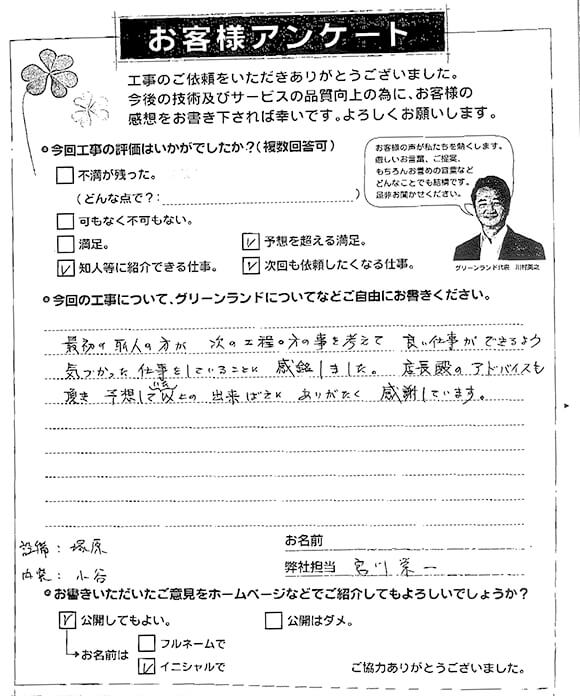 お客様アンケート
工事のご依頼をいただきありがとうございました。
今後の技術及びサービスの品質向上の為に、お客様の
感想をお書き下されば幸いです。よろしくお願いします。
今回工事の評価はいかがでしたか？(複数回答可)
不満が残った。
(どんな点で？: )
可もなく不可もない。
満足。
予想を超える満足。
知人等に紹介できる仕事。
次回も依頼したくなる仕事。
お客様の声が私たちを熱くします。
厳しいお言葉、ご提案、
もちろんお誉めの言葉など
どんなことでも結構です。
是非お聞かせください。
グリーンランド代表 川村英之
今回の工事について、グリーンランドについてなどご自由にお書きください。
最初の職人の方が 次の工程の方の事を考えて 良い仕事ができるよう
気づかった仕事をしていることに 感銘しました。店長殿のアドバイスも
頂き 予想していた以上の 出来ばえに ありがたく 感謝しています。
設備: 塚原
内装: 小谷
お名前
弊社担当 宮川 栄一
お書きいただいたご意見をホームページなどでご紹介してもよろしいでしょうか？
公開してもよい。
公開はダメ。
お名前は
フルネームで
イニシャルで
ご協力ありがとうございました。